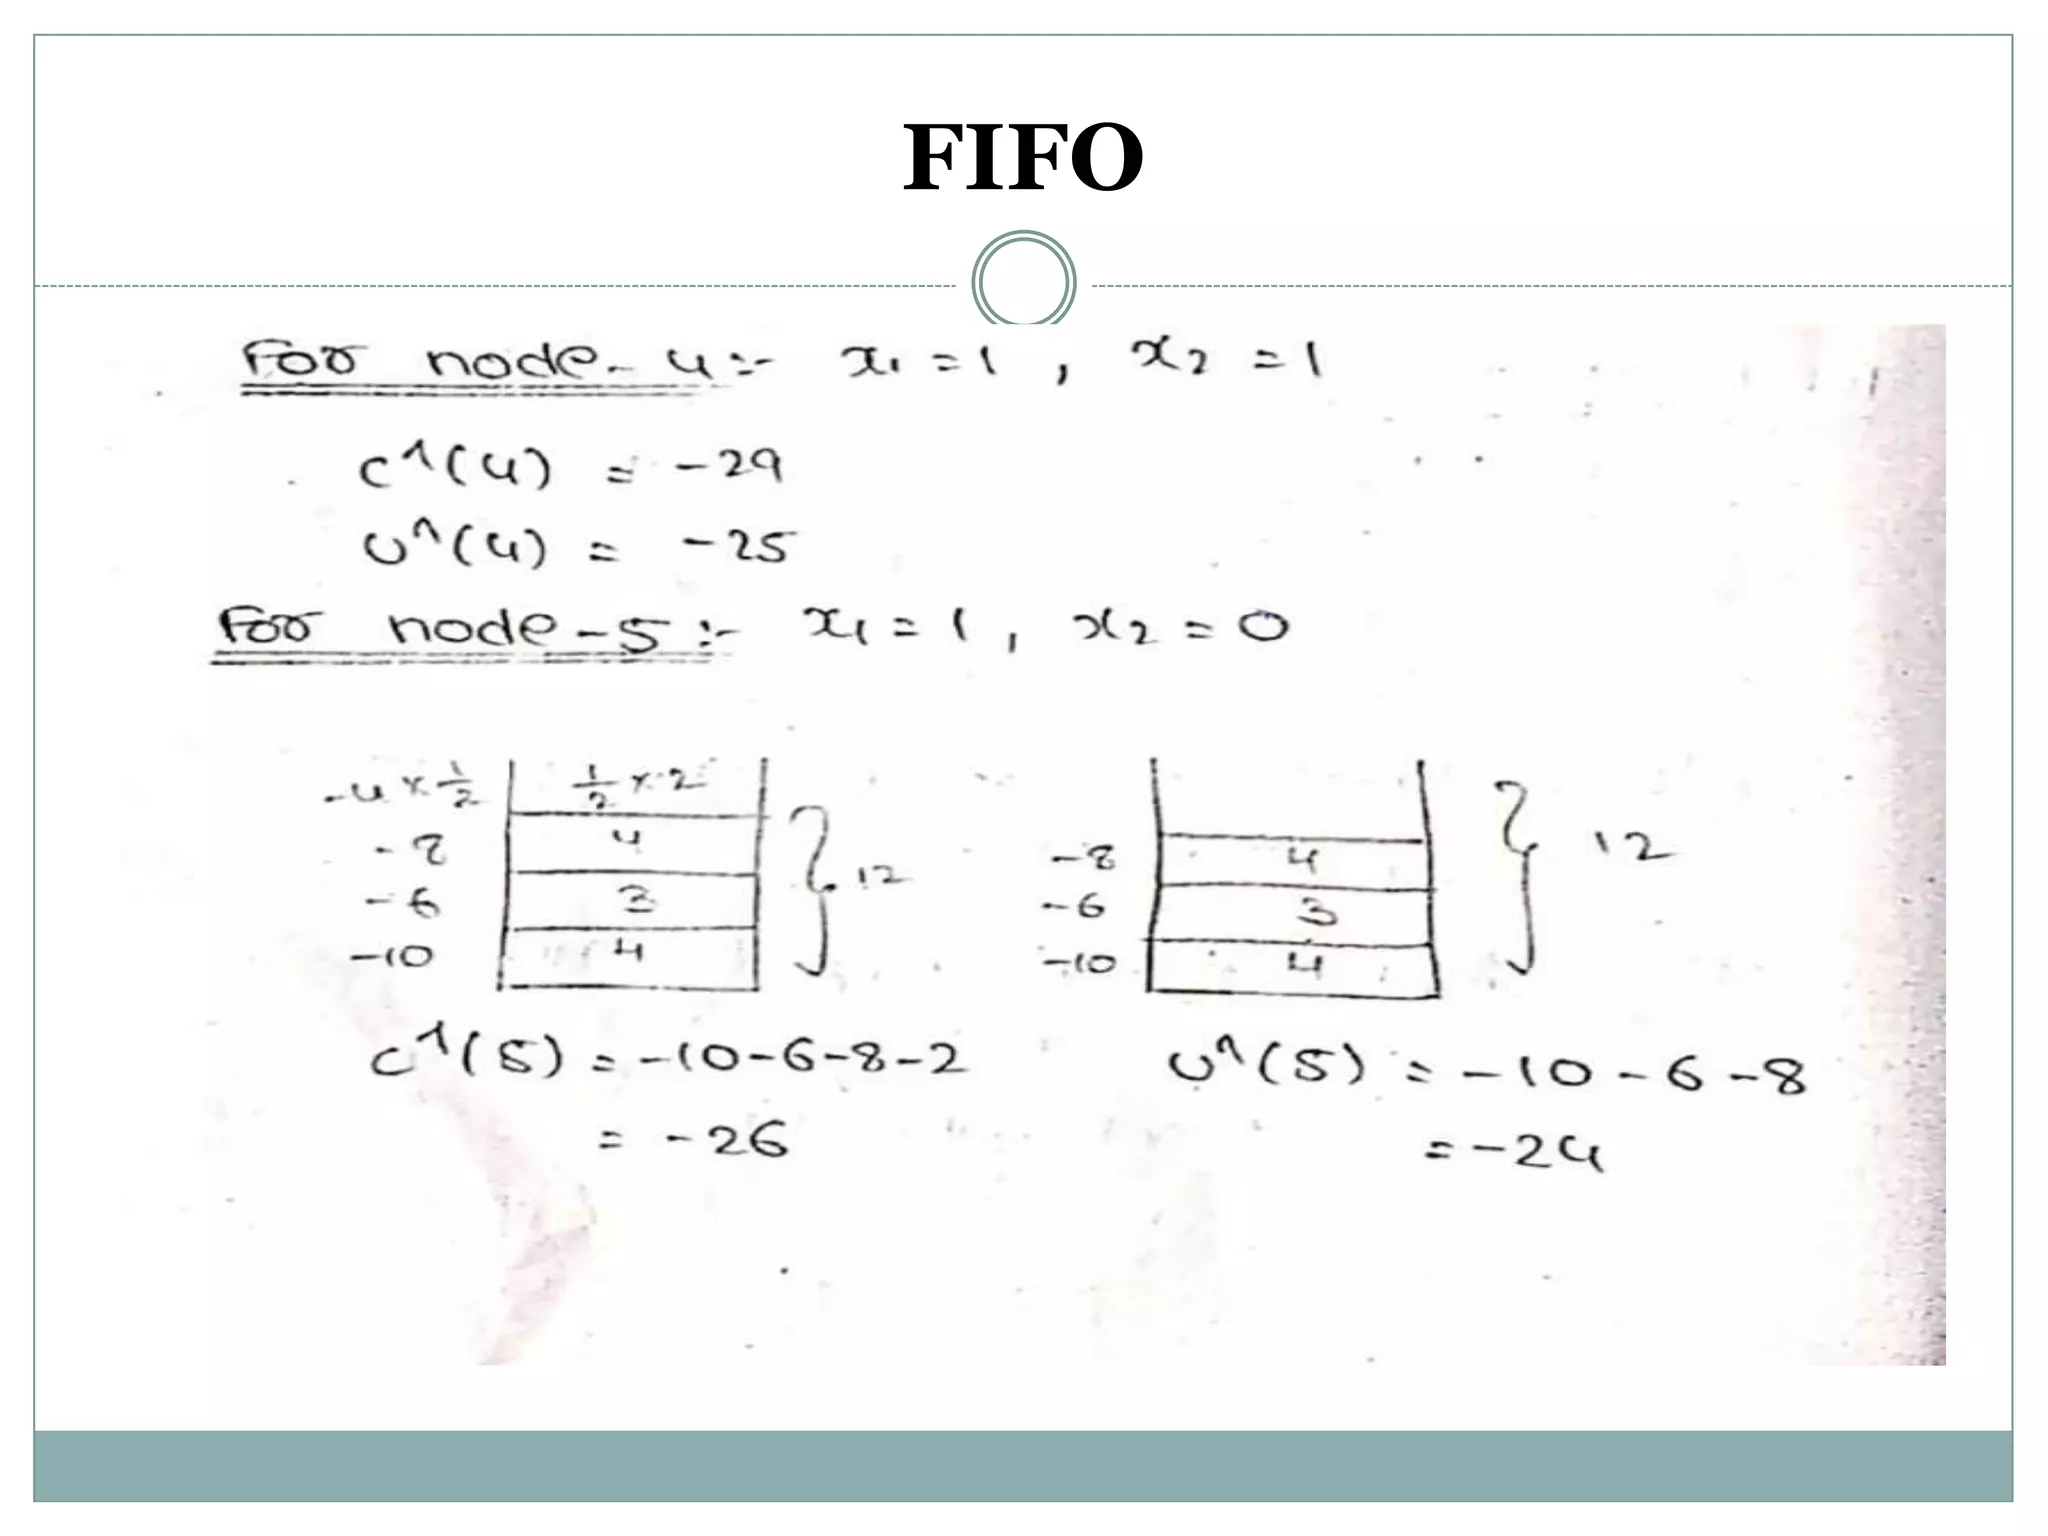 FIFO
For node-4:- x1 = 1, x2 = 1
c^(4) = -29
u^(4) = -25
For node-5:- x1 = 1, x2 = 0
-4 x 1/2 1/2 x 2
-8 4
-6 3 12
-10 4
-8 4 12
-6 3
-10 4
c^(5) = -10-6-8-2
= -26
u^(5) = -10-6-8
= -24